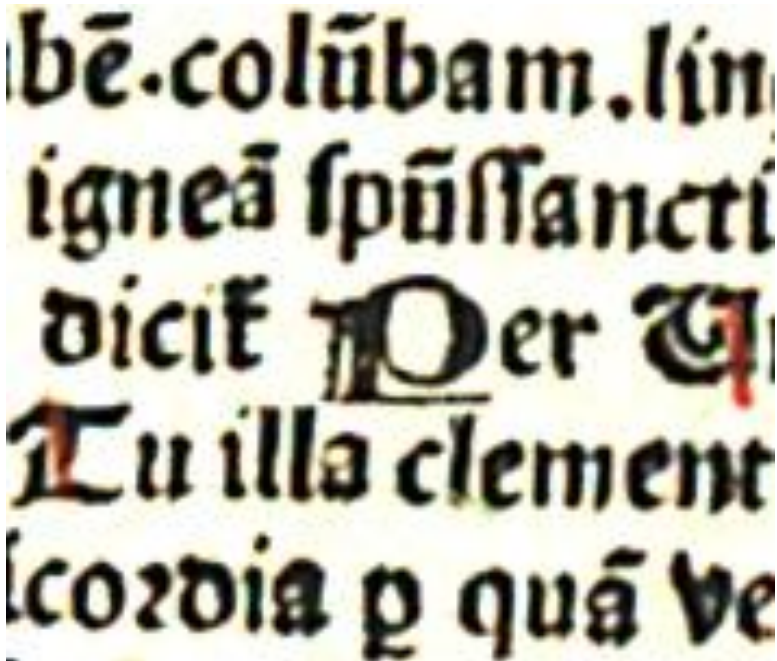 bē.colūbam.lin
igneā ſpūſſancti
dicit᷑ Per U
Tu illa clement
icoꝛdia ꝑ quā ve